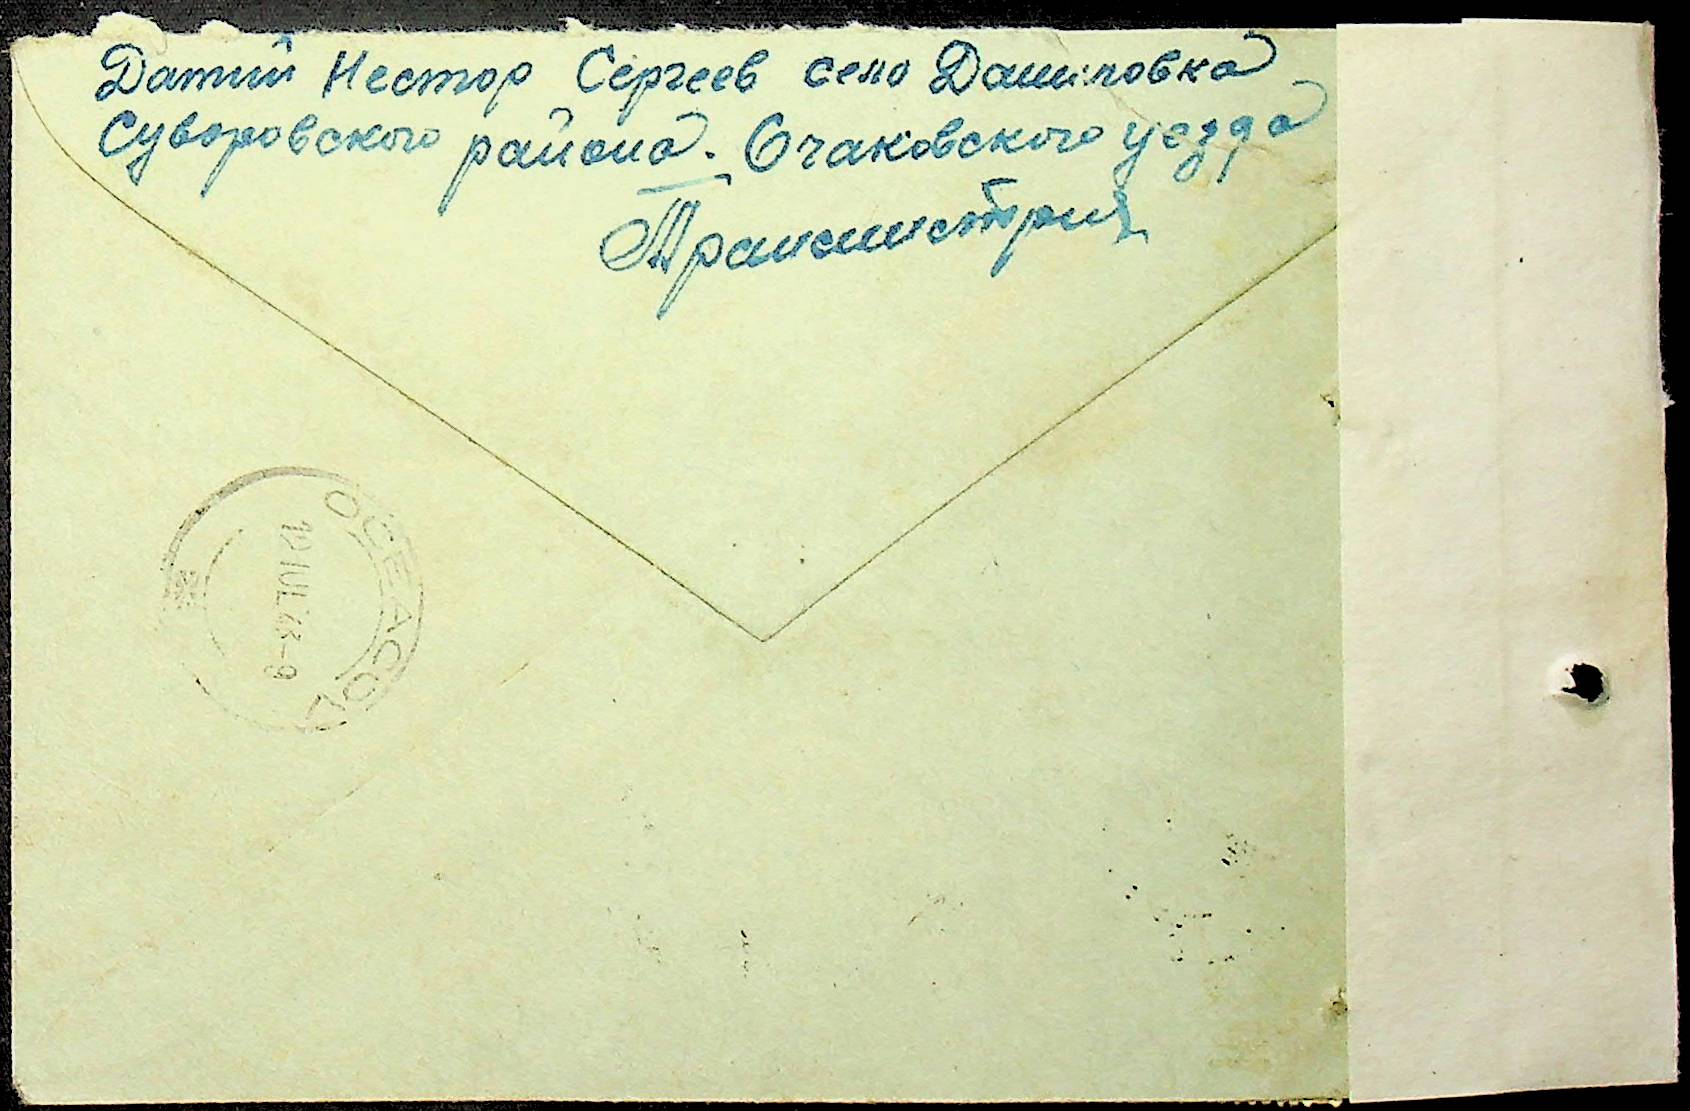 Датий Нестор Сергеев село Даниловка
Суворовского района. Очаковского уезда
Транснистрия
OCEACOV
19 IUL 43-9